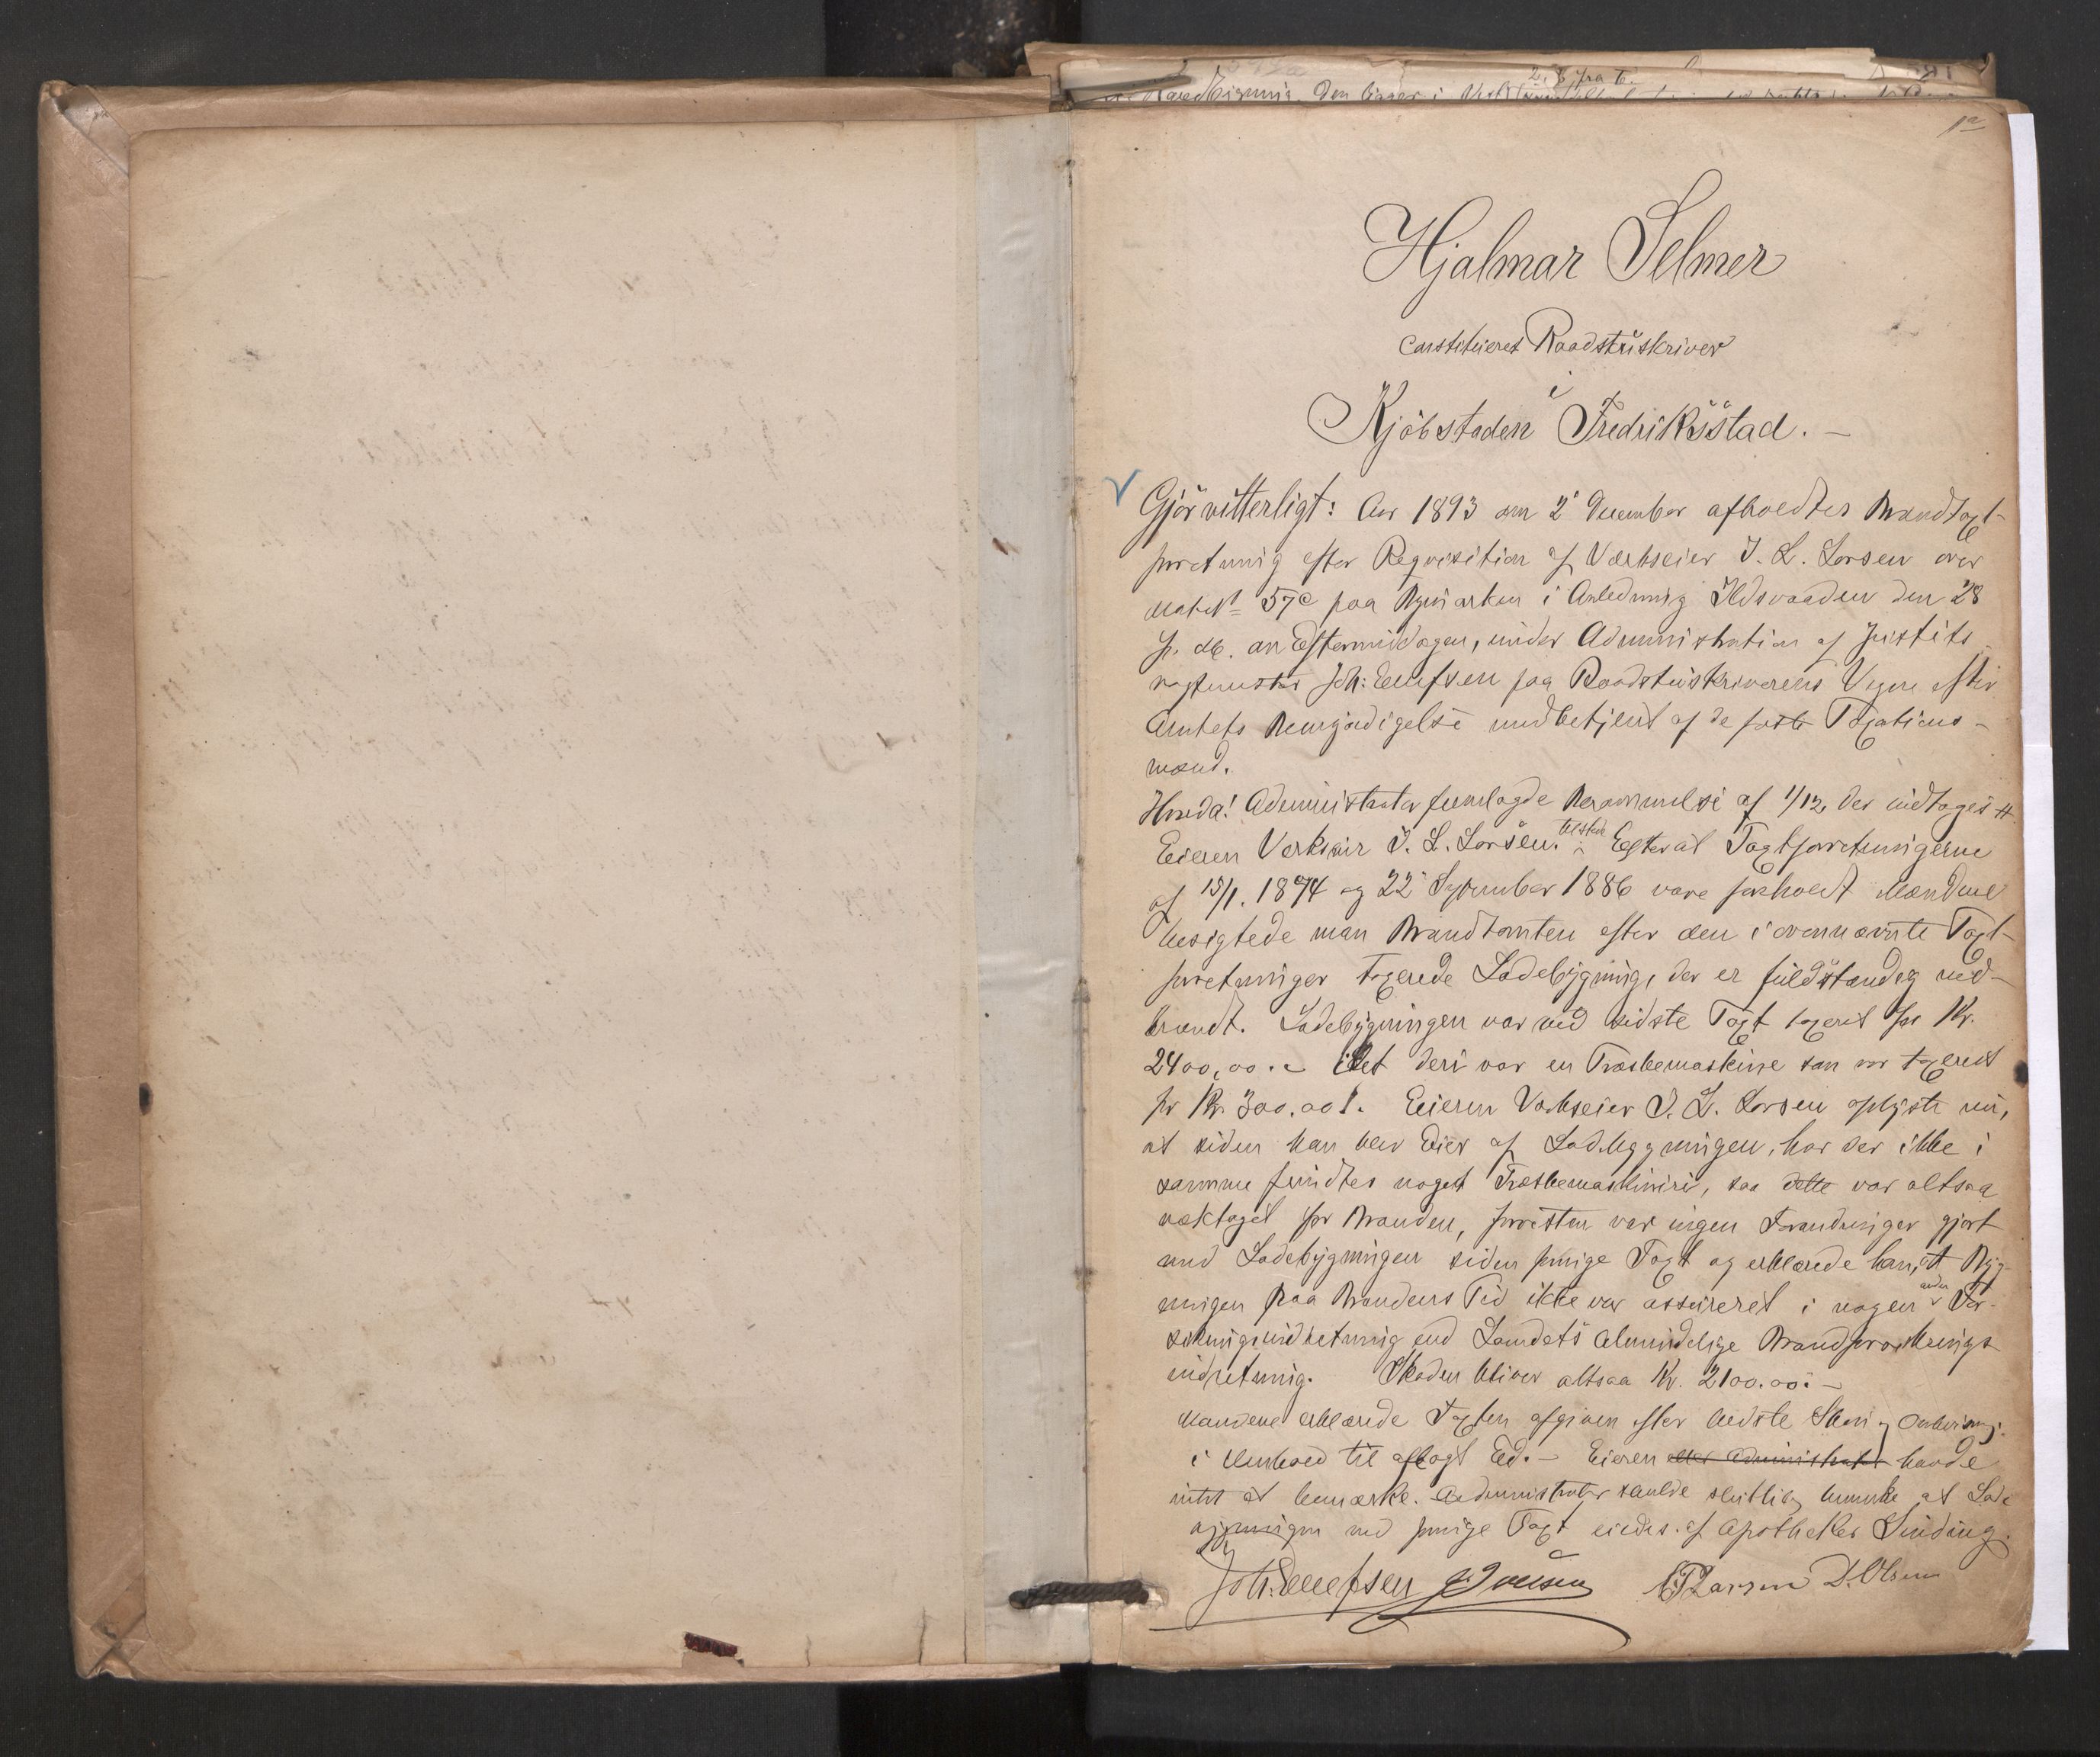 1a
Hjalmar Selmer
constitueret Raadstuskriver
i
Kjöbstaden Fredriksstad. –
Gjör vitterligt: Aar 1893 den 2 December afholdtes Brandtaxt-
forretning efter Reqvisition af Værkseier J. L. Larsen over
Matr. No 57c paa Nymarken i Anledning Ildsvaaden den 28
f. M. om Eftermiddagen, under Administration af Justits-
vagtmester Joh: Ellefsen paa Raadstuskriverens Vegne efter
Amtets Bemyndigelse med betjent af de faste Taxations-
mænd.
Hvorda! Administrator fremlagde Berammelse af 1/12, der indtages #
Eieren Verkseier J. L. Larsen tilstede. Efterat Taxtforretningerne
af 15/1. 1874 og 22 September 1886 vare foreholdt Mændene
besigtede man Brandtomten efter den i ovennævnte Taxt-
forretninger taxerede Ladebygning, der er fuldstændig ned-
brændt. Ladebygningen var ved sidste Taxt taxeret for Kr.
2400,00. – idet deri var en Træskemaskine som var taxeret
for Kr. 300.00. Eieren Værkseier J. L. Larsen oplyste nu,
at siden han blev Eier af Ladebygningen, har der ikke i
samme fundtes noget Træskemaskineri, saa dette var altsaa
væktaget før Branden, forresten var ingen Forandringer gjort
med Ladebygningen siden forrige Taxt og erklærede han, at Byg-
ningen paa Brandens Tid ikke var assureret i nogen anden For-
sikringsindretning end Landets almindelige Brandforsikrings
indretning. Skaden bliver altsaa Kr. 2100.00: –
Mændene erklærede Taxten afgiven efter bedste Skjøn og Overbevisning
i Henhold til aflagt Ed. – Eieren eller Administrator havde
intet at bemærke. Administrator skulde sluttelig bemærke at Lade
bygningen ved forrige Taxt eiedes af Apotheker Sinding.
Joh. Ellefsen Larsen D. Olsen